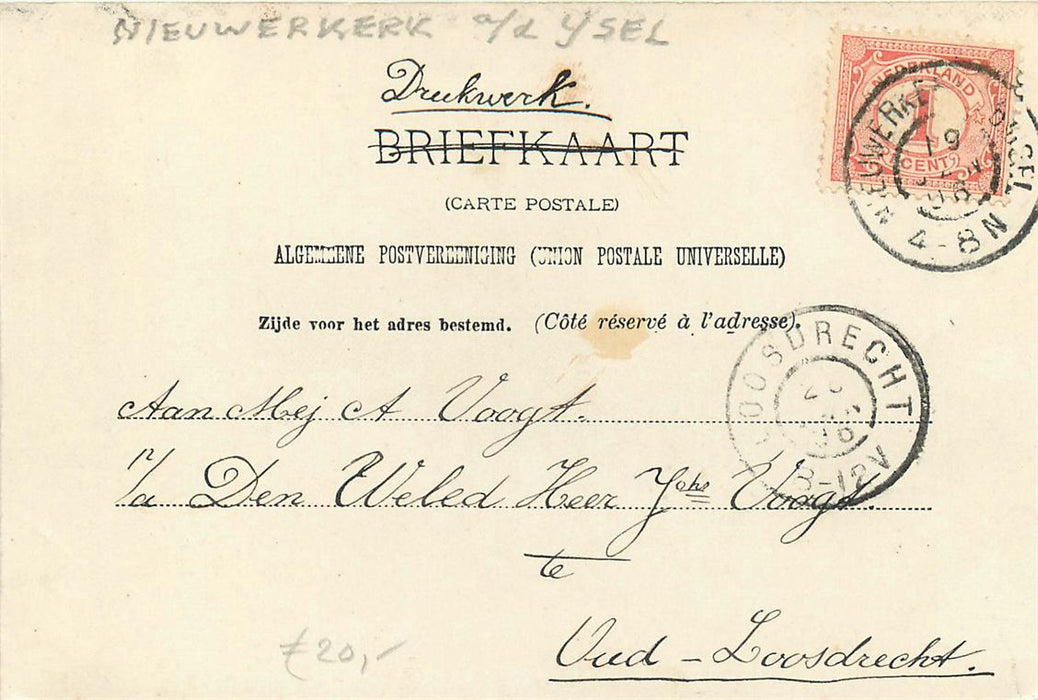 NIEUWERKERK a/d YSEL
Drukwerk.
BRIEFKAART
(CARTE POSTALE)
ALGEMEENE POSTVEREENIGING (UNION POSTALE UNIVERSELLE)
Zijde voor het adres bestemd. (Côté réservé à l'adresse).
NEDERLAND
1
CENT
19
06
4-8N
LOOSDRECHT
06
8-12V
Aan Mej A Voogt.
p/a Den Weled Heer Johs Voogt.
te
Oud - Loosdrecht.
€20,-